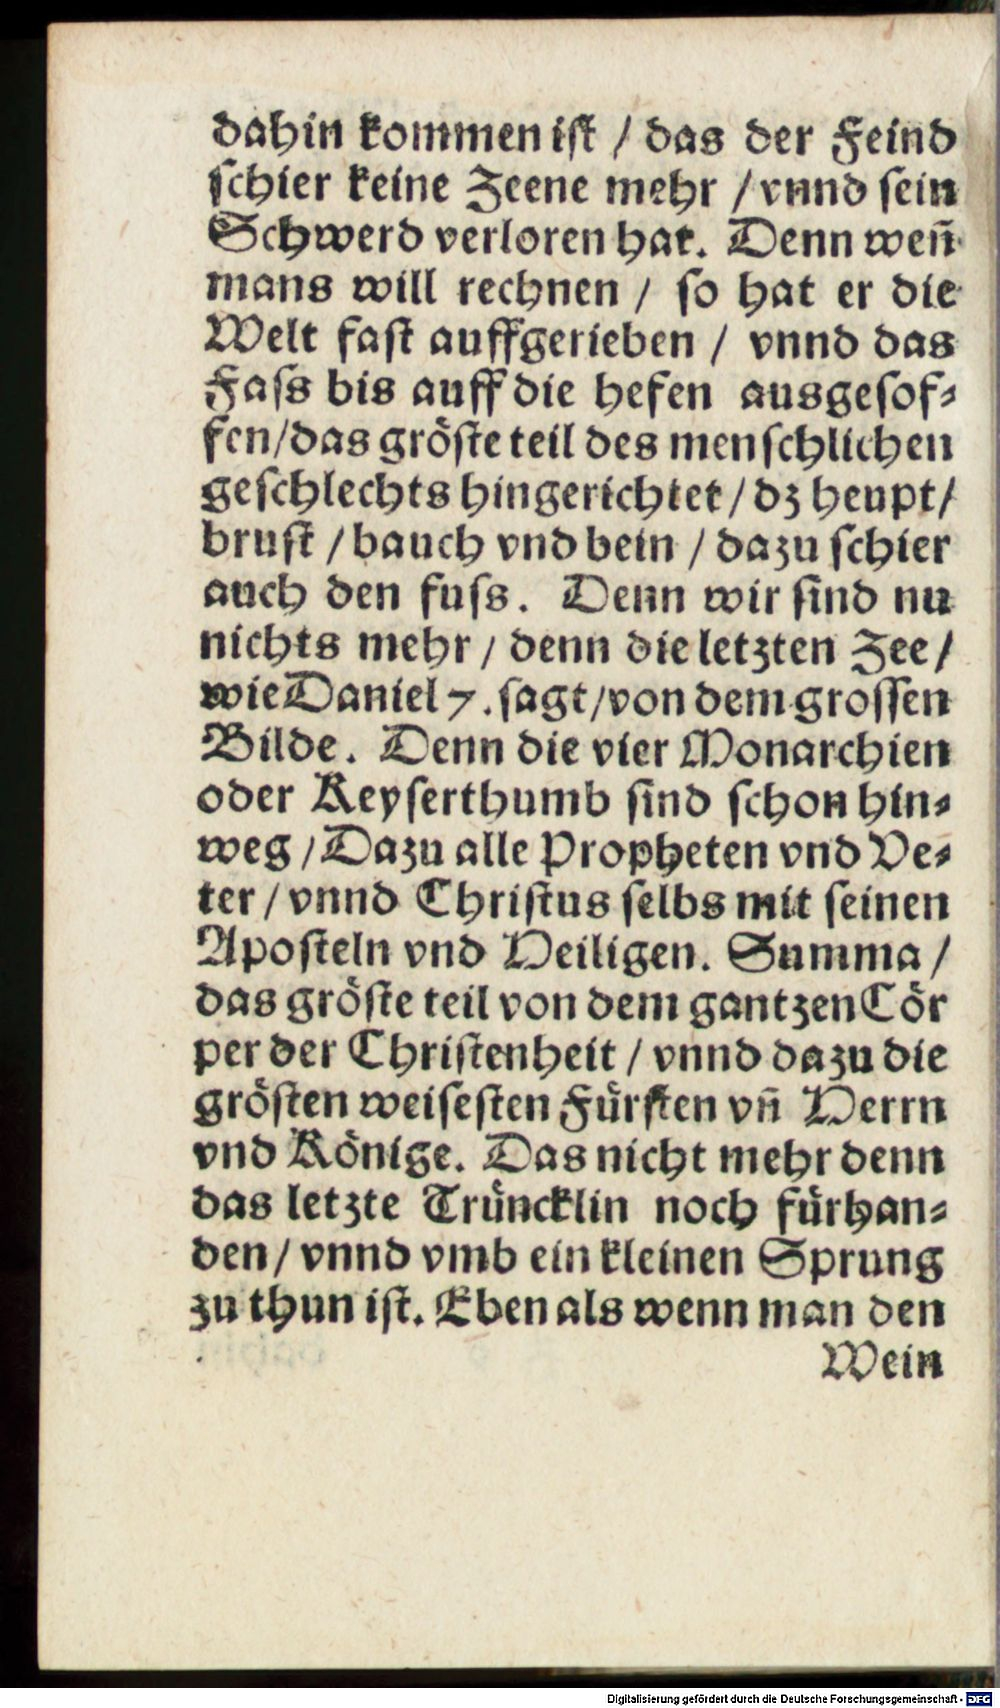 dahin kommen ist / das der Feind
schier keine Zeene mehr / vnnd sein
Schwerd verloren hat. Denn weñ
mans will rechnen / so hat er die
Welt fast auffgerieben / vnnd das
Fass bis auff die hefen ausgesof-
fen/das gröste teil des menschlichen
geschlechts hingerichtet / dz heupt/
brust / bauch vnd bein / dazu schier
auch den fuss. Denn wir sind nu
nichts mehr / denn die letzten Zee/
wie Daniel 7. sagt/von dem grossen
Bilde. Denn die vier Monarchien
oder Keyserthumb sind schon hin-
weg / Dazu alle Propheten vnd Ve-
ter / vnnd Christus selbs mit seinen
Aposteln vnd Heiligen. Summa /
das gröste teil von dem gantzen Cör
per der Christenheit / vnnd dazu die
grösten weisesten Fürsten vñ Herrn
vnd Könige. Das nicht mehr denn
das letzte Trüncklin noch fürhan-
den / vnnd vmb ein kleinen Sprung
zu thun ist. Eben als wenn man den
Wein
Digitalisierung gefördert durch die Deutsche Forschungsgemeinschaft - DFG